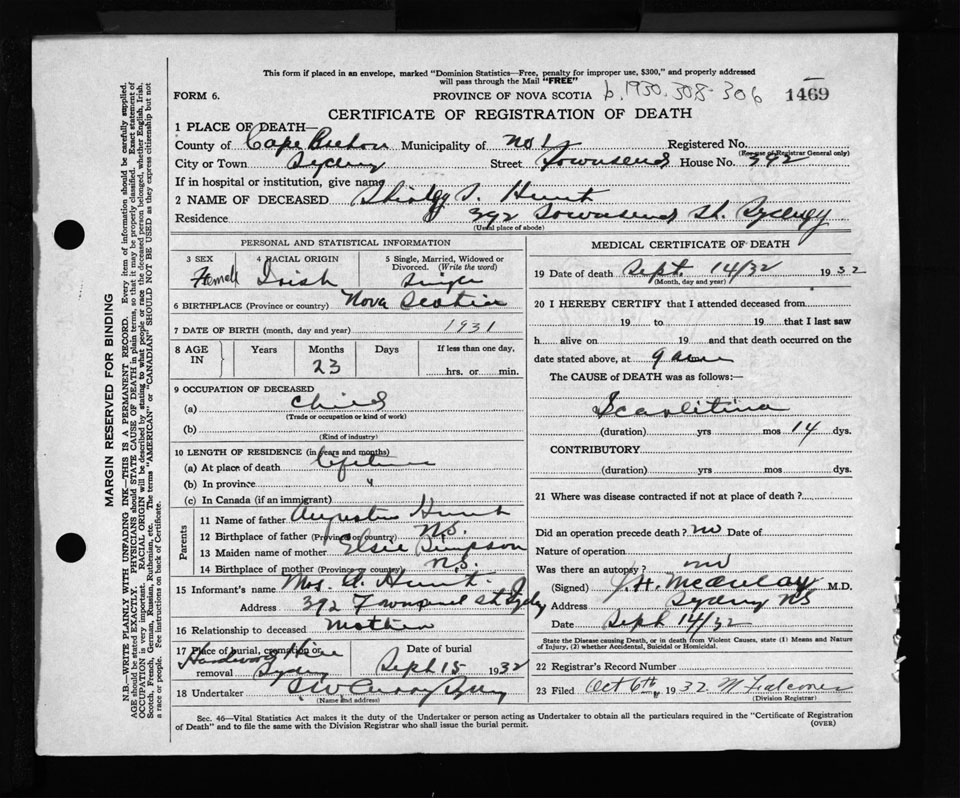 This form if placed in an envelope, marked "Dominion Statistics—Free, penalty for improper use, $300," and properly addressed
will pass through the Mail "FREE"
FORM 6. PROVINCE OF NOVA SCOTIA b.1930.308-306 1469
CERTIFICATE OF REGISTRATION OF DEATH
1 PLACE OF DEATH—
County of Cape Breton Municipality of No 1 Registered No.
(For use of Registrar General only)
City or Town Sydney Street Townsend House No. 392
If in hospital or institution, give name
2 NAME OF DECEASED Hunt
Residence 392 Townsend St. Sydney
(Usual place of abode)
PERSONAL AND STATISTICAL INFORMATION
3 SEX 4 RACIAL ORIGIN 5 Single, Married, Widowed or
Divorced. (Write the word)
Female Irish Single
6 BIRTHPLACE (Province or country) Nova Scotia
7 DATE OF BIRTH (month, day and year) 1931
8 AGE IN Years Months Days If less than one day,
23 hrs. or min.
9 OCCUPATION OF DECEASED
(a) Child
(Trade or occupation or kind of work)
(b)
(Kind of industry)
10 LENGTH OF RESIDENCE (in years and months)
(a) At place of death Lifetime
(b) In province "
(c) In Canada (if an immigrant)
Parents
11 Name of father Augustus Hunt
12 Birthplace of father (Province or country) N.S.
13 Maiden name of mother Elsie Simpson
14 Birthplace of mother (Province or country) N.S.
15 Informant's name Mrs. A. Hunt
Address 392 Townsend St Sydney
16 Relationship to deceased Mother
17 Place of burial, cremation or removal Sydney
Date of burial
Sept 15 1932
18 Undertaker Sydney
(Name and address)
MEDICAL CERTIFICATE OF DEATH
19 Date of death Sept. 14/32 1932
(Month, day and year)
20 I HEREBY CERTIFY that I attended deceased from
19 to 19 that I last saw
h alive on 19 and that death occurred on the
date stated above, at 9 am
The CAUSE of DEATH was as follows:
Scarlitina
(duration) yrs mos 14 dys.
CONTRIBUTORY
(duration) yrs mos dys.
21 Where was disease contracted if not at place of death?
Did an operation precede death? no Date of
Nature of operation
Was there an autopsy? no
(Signed) J. H. McAulay M.D.
Address Sydney NS
Date Sept 14/32
State the Disease causing Death, or in death from Violent Causes, state (1) Means and Nature
of Injury, (2) whether Accidental, Suicidal or Homicidal.
22 Registrar's Record Number
23 Filed Oct 6th, 1932 Falconer
(Division Registrar)
Sec. 46—Vital Statistics Act makes it the duty of the Undertaker or person acting as Undertaker to obtain all the particulars required in the "Certificate of Registration
of Death" and to file the same with the Division Registrar who shall issue the burial permit. (OVER)
MARGIN RESERVED FOR BINDING
N.B.—WRITE PLAINLY WITH UNFADING INK—THIS IS A PERMANENT RECORD. Every item of information should be carefully supplied.
AGE should be stated EXACTLY. PHYSICIANS should STATE CAUSE OF DEATH in plain terms, so that it may be properly classified. Exact statement of
OCCUPATION is very important. RACIAL ORIGIN will be described by stating to what people or race the deceased person belonged, whether English, Irish,
Scotch, French, German, Russian, Ruthenian, etc. The terms "AMERICAN" or "CANADIAN" SHOULD NOT BE USED as they express citizenship but not
a race or people. See instructions on back of Certificate.